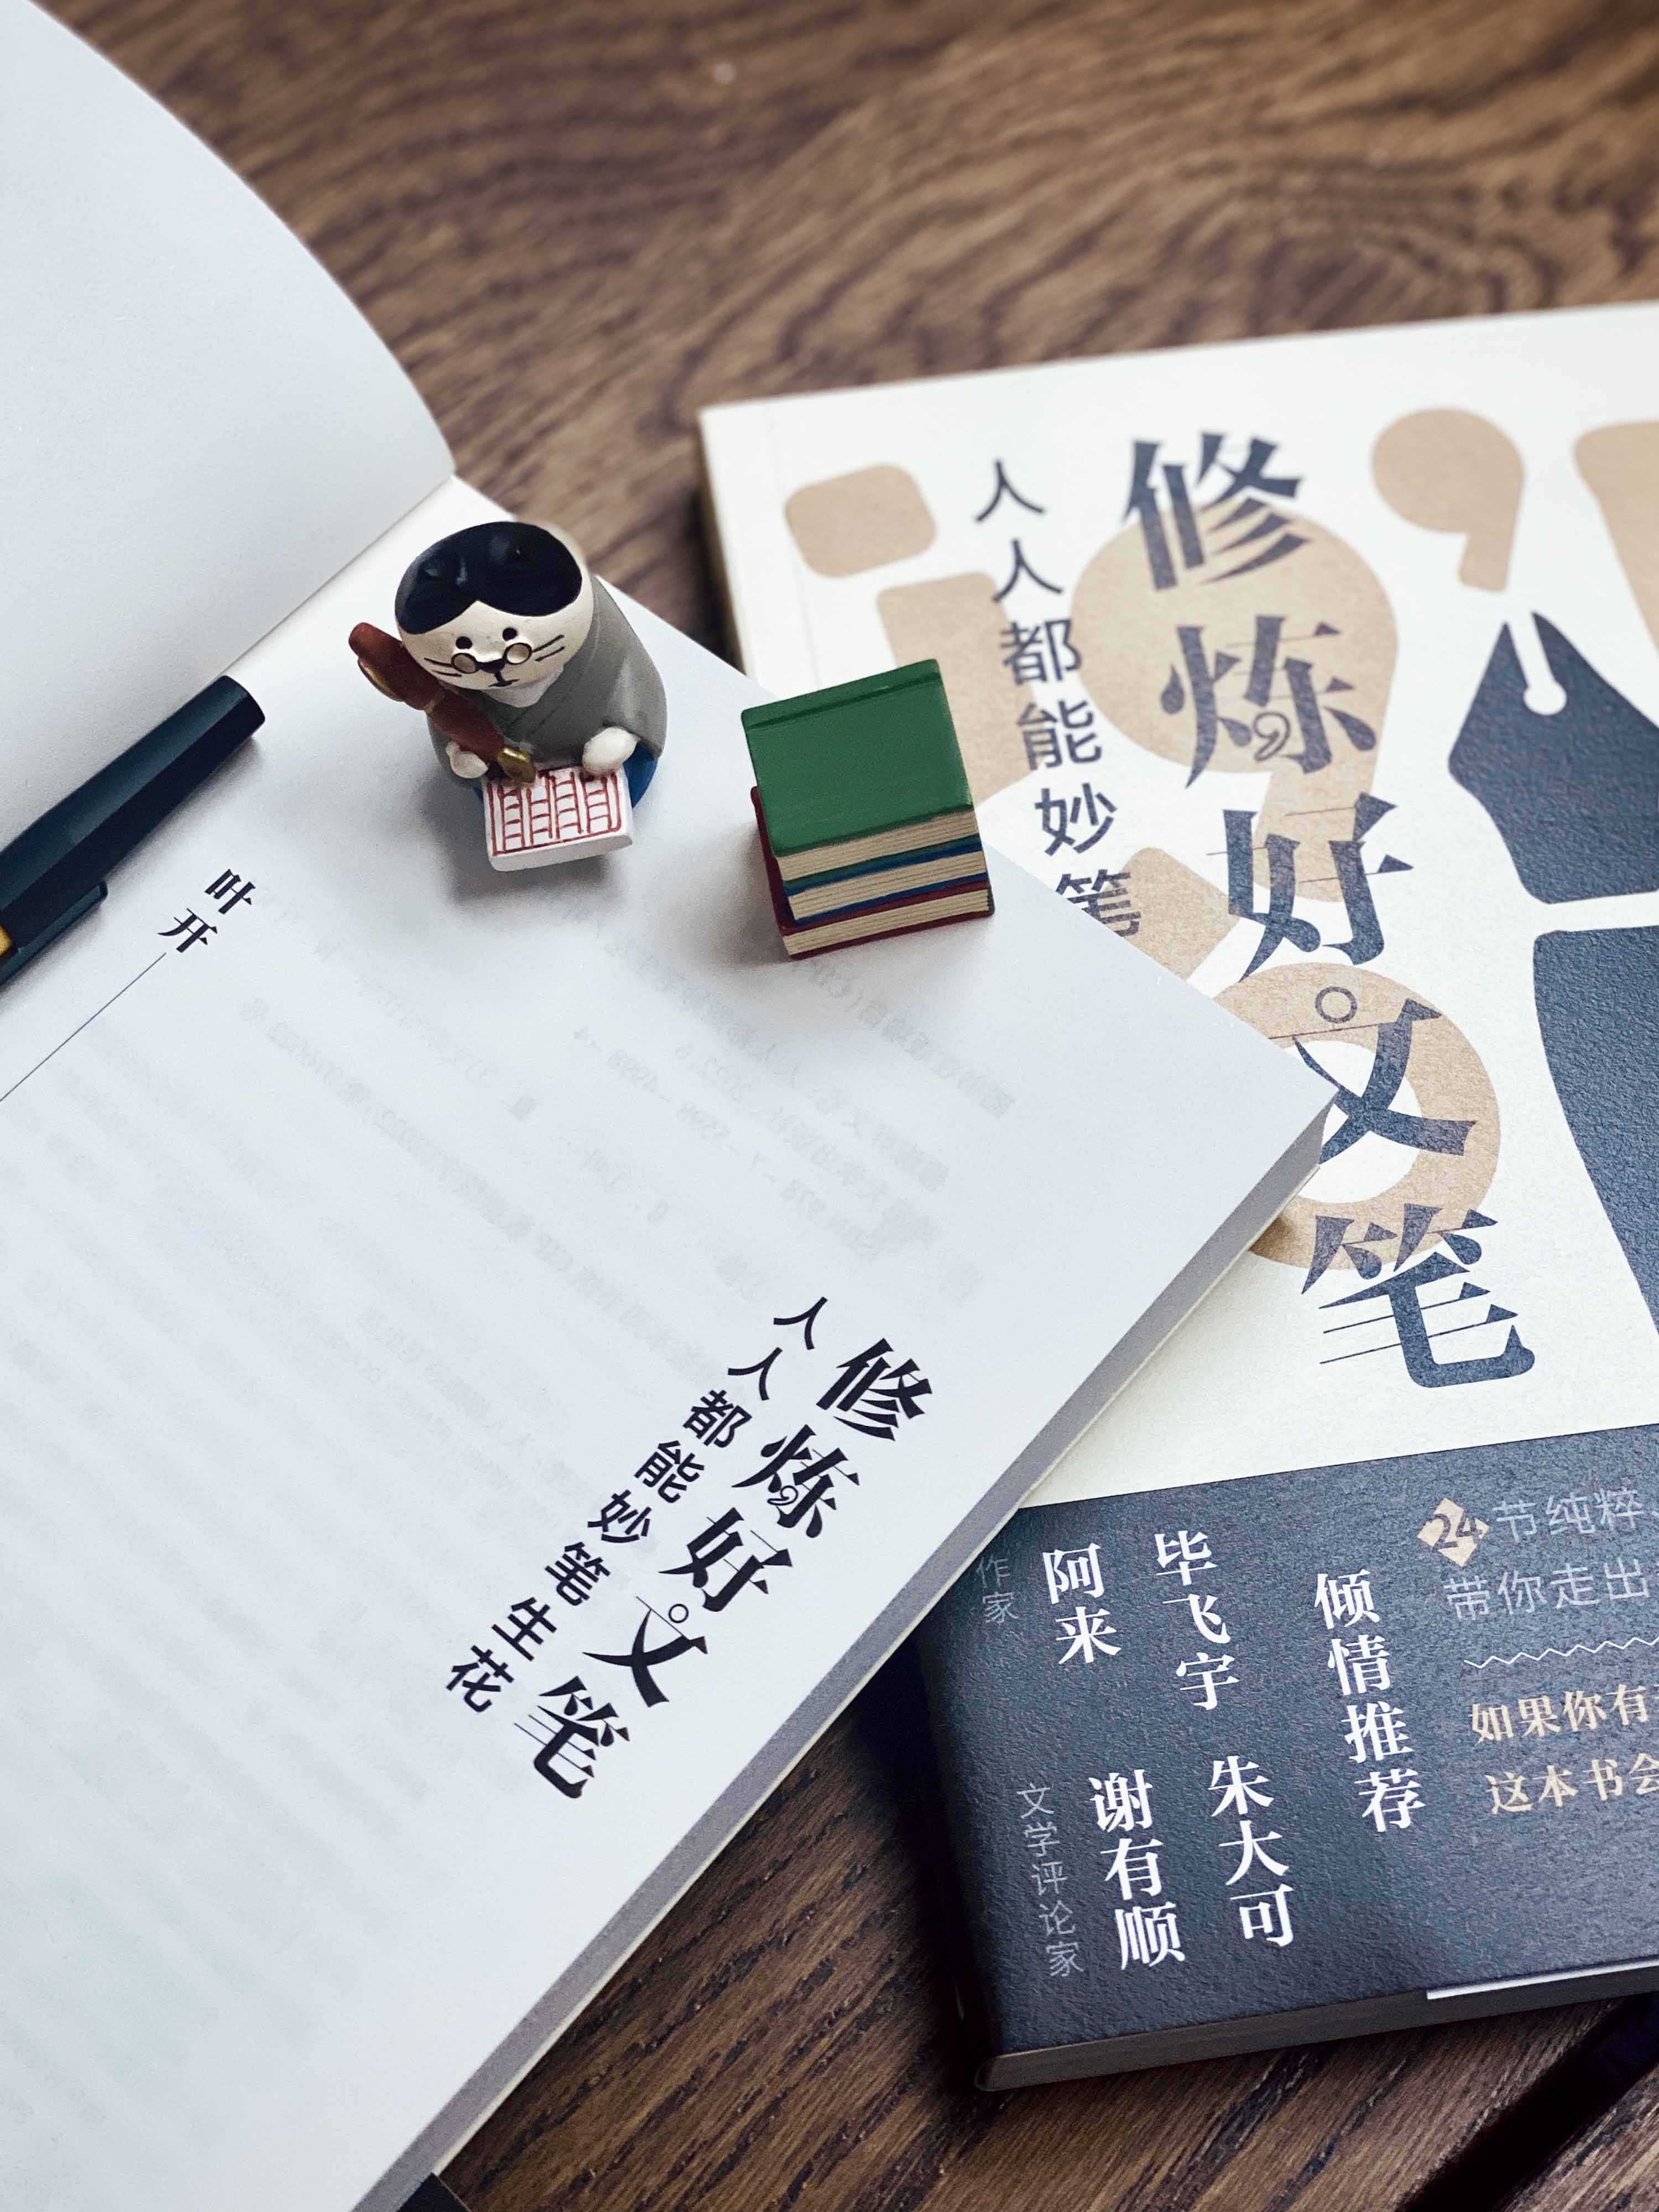 修炼好文笔
人人都能妙笔
24节纯粹
带你走出
如果你有
这本书会
倾情推荐
毕飞宇 朱大可
阿来 谢有顺
作家 文学评论家
修炼好文笔
人人都能妙笔生花
叶开